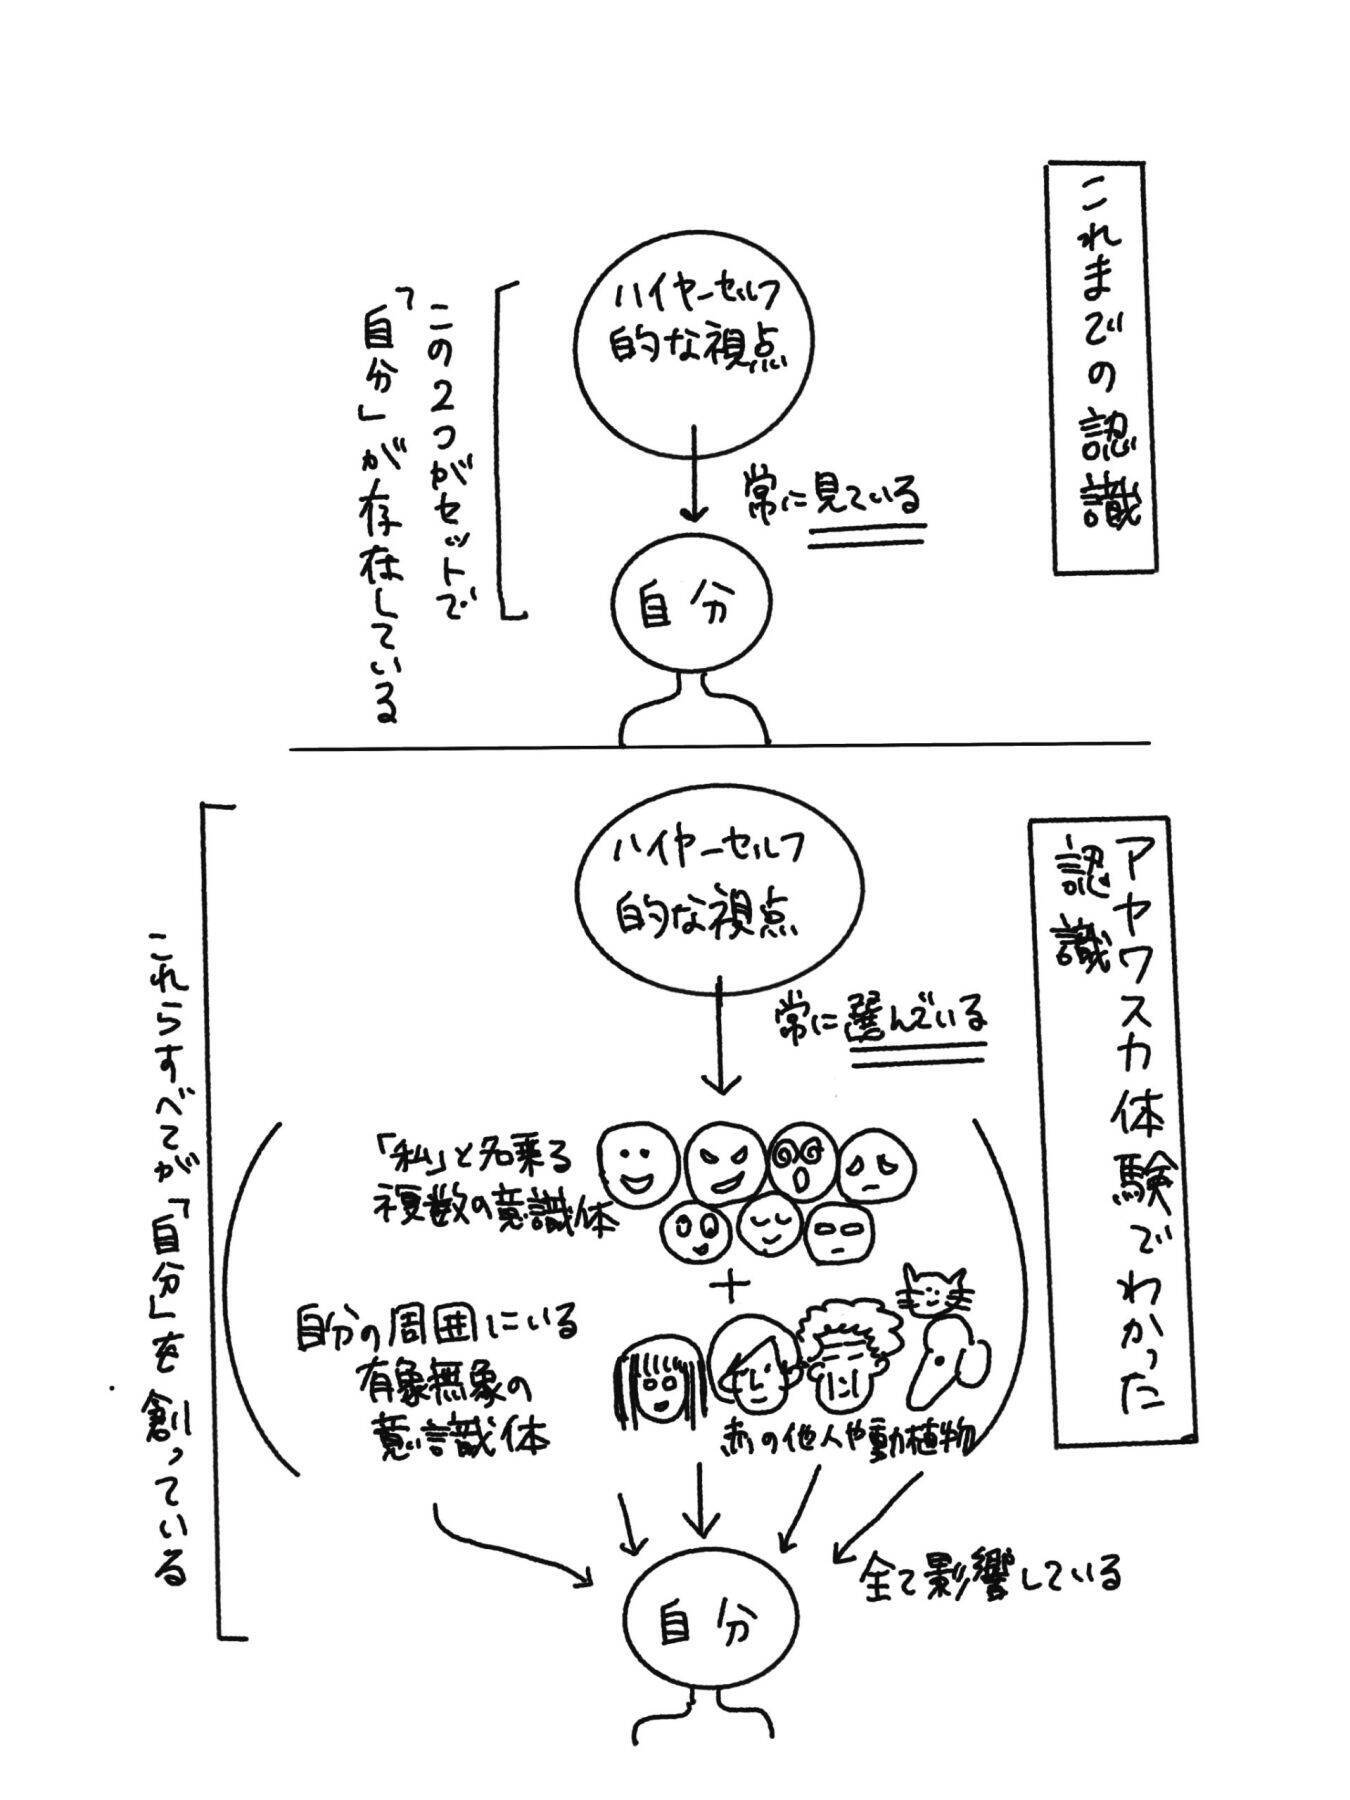 これまでの認識
ハイヤーセルフ
的な視点
常に見ている
自分
この2つがセットで
「自分」が存在している
アヤワスカ体験でわかった
認識
ハイヤーセルフ
的な視点
常に選んでいる
「私」と名乗る
複数の意識体
+
自分の周囲にいる
有象無象の
意識体
の他人や動植物
全て影響している
自分
これらすべてが「自分」を創っている